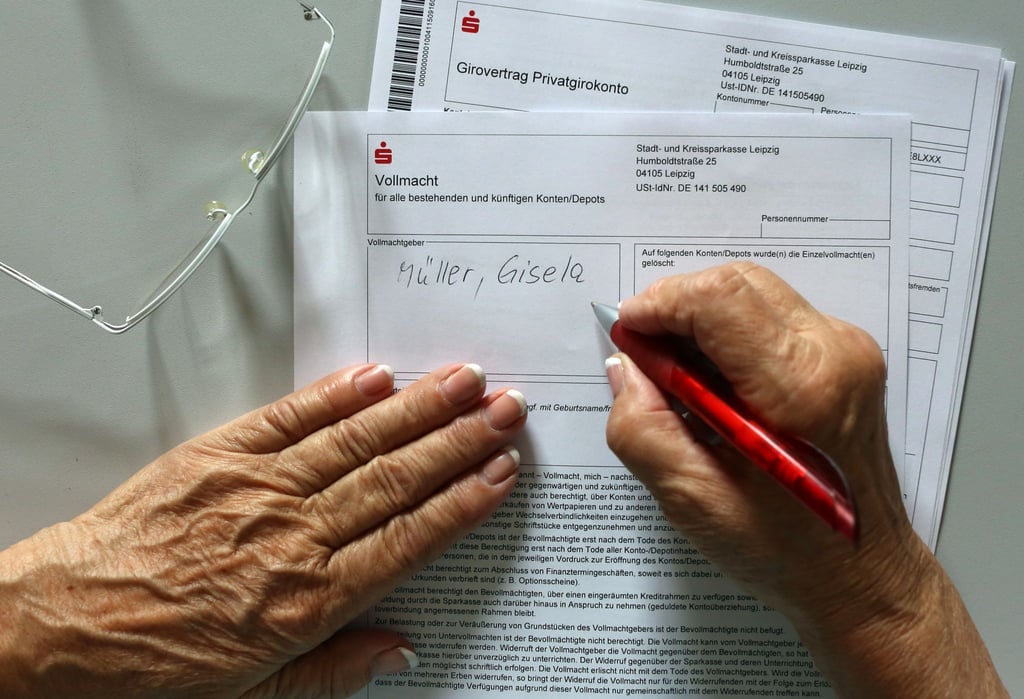 Stadt- und Kreissparkasse Leipzig
Humboldtstraße 25
04105 Leipzig
Ust-IDNr. DE 141505490
Girovertrag Privatgirokonto
Kontonummer
8LXXX
Stadt- und Kreissparkasse Leipzig
Humboldtstraße 25
04105 Leipzig
USt-IdNr. DE 141 505 490
Vollmacht
für alle bestehenden und künftigen Konten/Depots
Personennummer
Vollmachtgeber
Müller, Gisela
Auf folgenden Konten/Depots wurde(n) die Einzelvollmacht(en)
gelöscht:
ggf. mit Geburtsname/
– Vollmacht, mich –
der gegenwärtigen und zukünftigen
andere auch berechtigt, über Konten und
von Wertpapieren und zu anderen
Wechselverbindlichkeiten einzugehen und
sonstige Schriftstücke entgegenzunehmen und
ist der Bevollmächtigte erst nach dem Tode des
diese Berechtigung erst nach dem Tode aller
die im jeweiligen Vordruck zur Eröffnung des
berechtigt zum Abschluss von Finanztermingeschäften, soweit es sich dabei
Urkunden verbrieft sind (z. B. Optionsscheine).
berechtigt den Bevollmächtigten, über einen eingeräumten Kreditrahmen zu verfügen
durch die Sparkasse auch darüber hinaus in Anspruch zu nehmen (geduldete Kontoüberziehung),
angemessenen Rahmen bleibt.
Zur Belastung oder zur Veräußerung von Grundstücken des Vollmachtgebers ist der Bevollmächtigte nicht befugt.
von Untervollmachten ist der Bevollmächtigte nicht berechtigt. Die Vollmacht kann vom Vollmachtgeber
widerrufen werden. Widerruft der Vollmachtgeber die Vollmacht gegenüber dem Bevollmächtigten, so hat
hierüber unverzüglich zu unterrichten. Der Widerruf gegenüber der Sparkasse und deren Unterrichtung
möglichst schriftlich erfolgen. Die Vollmacht erlischt nicht mit dem Tode des Vollmachtgebers. Wird die
von mehreren Erben widerrufen, so bringt der Widerruf die Vollmacht nur für den Widerrufenden mit der Folge zum
dass der Bevollmächtigte Verfügungen aufgrund dieser Vollmacht nur gemeinschaftlich mit dem Widerrufenden treffen kann.